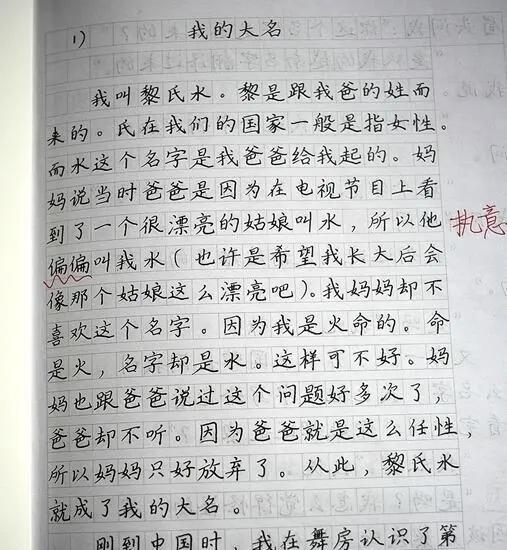 1) 我的大名
我叫黎氏水。黎是跟我爸的姓而
来的。氏在我们的国家一般是指女性。
而水这个名字是我爸爸给我起的。妈
妈说当时爸爸是因为在电视节目上看
到了一个很漂亮的姑娘叫水,所以他 执意
偏偏叫我水(也许是希望我长大后会
像那个姑娘这么漂亮吧)。我妈妈却不
喜欢这个名字。因为我是火命的。命
是火,名字却是水。这样可不好。妈
妈也跟爸爸说过这个问题好多次了,
爸爸却不听。因为爸爸就是这么任性,
所以妈妈只好放弃了。从此,黎氏水
就成了我的大名。
刚到中国时,我在舞房认识了第